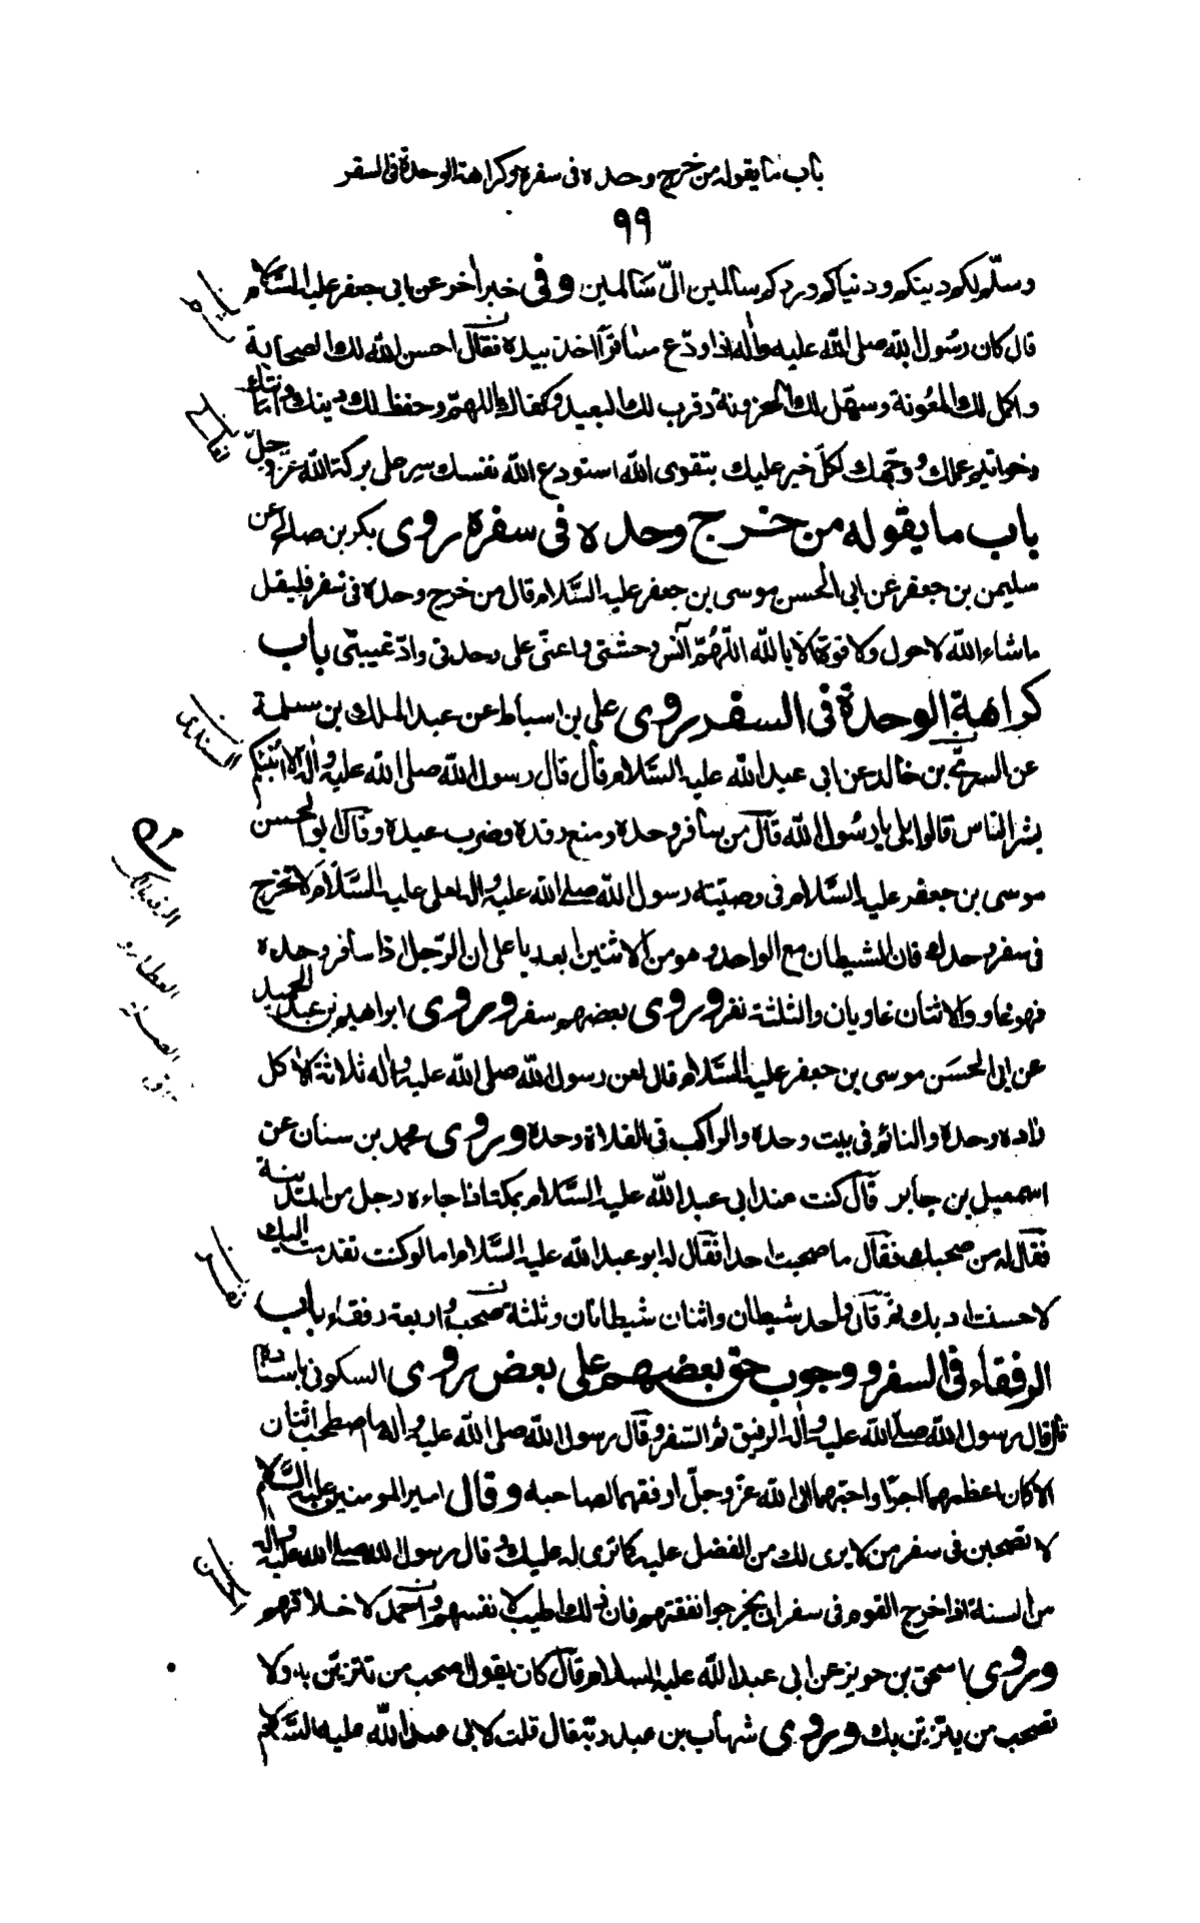 باب ما يقوله من خرج وحده فى سفره وكراهة الوحدة فى السفر
٩٩
وسلّم لكم دينكم ودنياكم وردكم سالمين الىّ سالمين وفى خبر اخر عن ابى جعفر عليه السّلام
قال كان رسول الله صلى الله عليه واله اذا ودّع مسافرا اخذ بيده فقال احسن الله لك الصحابة
واكمل لك المعونة وسهّل لك الحزونة وقرب لك البعيد وكفاك اللهمّ وحفظ لك دينك وامانتك
وخواتيم عملك ووجّهك لكلّ خير عليك بتقوى الله استودع الله نفسك سر على بركة الله عزّ وجلّ
باب ما يقوله من خرج وحده فى سفره روى بكر بن صالح عن
سليمن بن جعفر عن ابى الحسن موسى بن جعفر عليه السّلام قال من خرج وحده فى سفر فليقل
ماشاء الله لا حول ولا قوة الا بالله اللّهمّ آنس وحشتى واعنّى على وحدتى وادّ غيبتى باب
كراهة الوحدة فى السفر روى على بن اسباط عن عبد الملك بن سلمة
عن السرىّ بن خالد عن ابى عبد الله عليه السّلام قال قال رسول الله صلى الله عليه واله الا انبئكم
بشر الناس قالوا بلى يا رسول الله قال من سافر وحده ومنع رفده وضرب عبده وقال ابو الحسن
موسى بن جعفر عليه السّلام فى وصيّة رسول الله صلى الله عليه واله لعلى عليه السّلام لا تخرج
فى سفر وحدك فان الشيطان مع الواحد وهو من الاثنين ابعد يا على ان الرّجل اذا سافر وحده
فهو غاو والاثنان غاويان والثلثة نفر وروى بعضهم سفر وروى ابراهيم بن عبد الحميد
عن ابى الحسن موسى بن جعفر عليه السّلام قال لعن رسول الله صلى الله عليه واله ثلاثة الاكل
زاده وحده والنائم فى بيت وحده والراكب فى الفلاة وحده وروى محمد بن سنان عن
اسمعيل بن جابر قال كنت عند ابى عبد الله عليه السّلام بمكة اذا جاءه رجل من المدينة
فقال له من صحبك فقال ما صحبت احدا فقال له ابو عبد الله عليه السّلام اما لو كنت تقدمت اليك
لاحسنت ادبك ثم قال واحد شيطان واثنان شيطانان وثلثة صحب واربعة رفقاء باب
الرفقاء فى السفر ووجوب حق بعضهم على بعض روى السكونى باسناده
قال قال رسول الله صلى الله عليه واله الرفيق ثم السّفر وقال رسول الله صلى الله عليه واله ما اصطحب اثنان
الا كان اعظمهما اجرا واحبّهما الى الله عزّ وجلّ ارفقهما لصاحبه وقال امير المومنين عليه السّلام
لا تصحبن فى سفر من لا يرى لك من الفضل عليه كما ترى له عليك وقال رسول الله صلى الله عليه واله
من السنة اذا خرج القوم فى سفر ان يخرجوا نفقتهم فان ذلك اطيب لانفسهم واحمد لاخلاقهم
وروى اسحق بن حريز عن ابى عبد الله عليه السلام قال كان يقول اصحب من تتزيّن به ولا
تصحب من يتزيّن بك وروى شهاب بن عبد ربّه قال قلت لابى عبد الله عليه السّلام